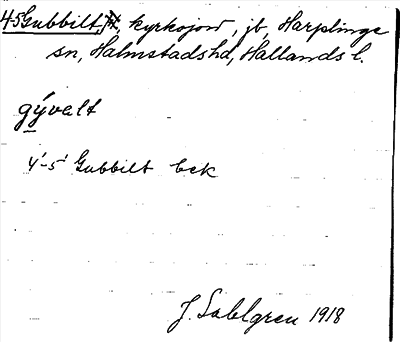 45 Gubbilt, kyrkojord, jb, Harplinge
sn, Halmstads hd, Hallands l.
gývalt
4'-5' Gubbilt bck
J. Sahlgren 1918